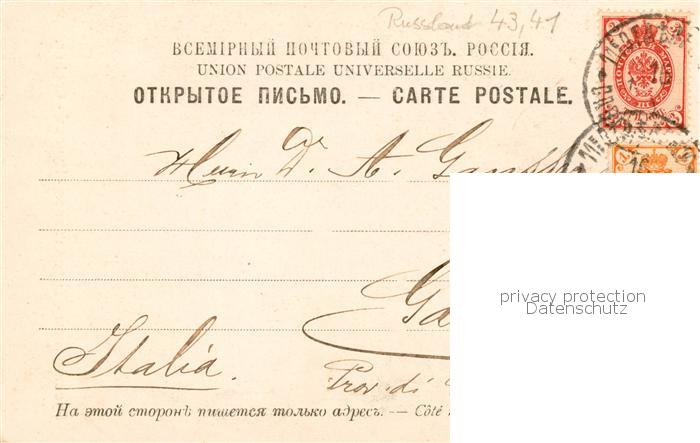 Russland 43,41
ВСЕМІРНЫЙ ПОЧТОВЫЙ СОЮЗЪ. РОССІЯ.
UNION POSTALE UNIVERSELLE RUSSIE.
ОТКРЫТОЕ ПИСЬМО. — CARTE POSTALE.
Herrn Dr. A.
privacy protection
Datenschutz
Italia.
Prov. di
На этой сторонѣ пишется только адресъ. — Côté